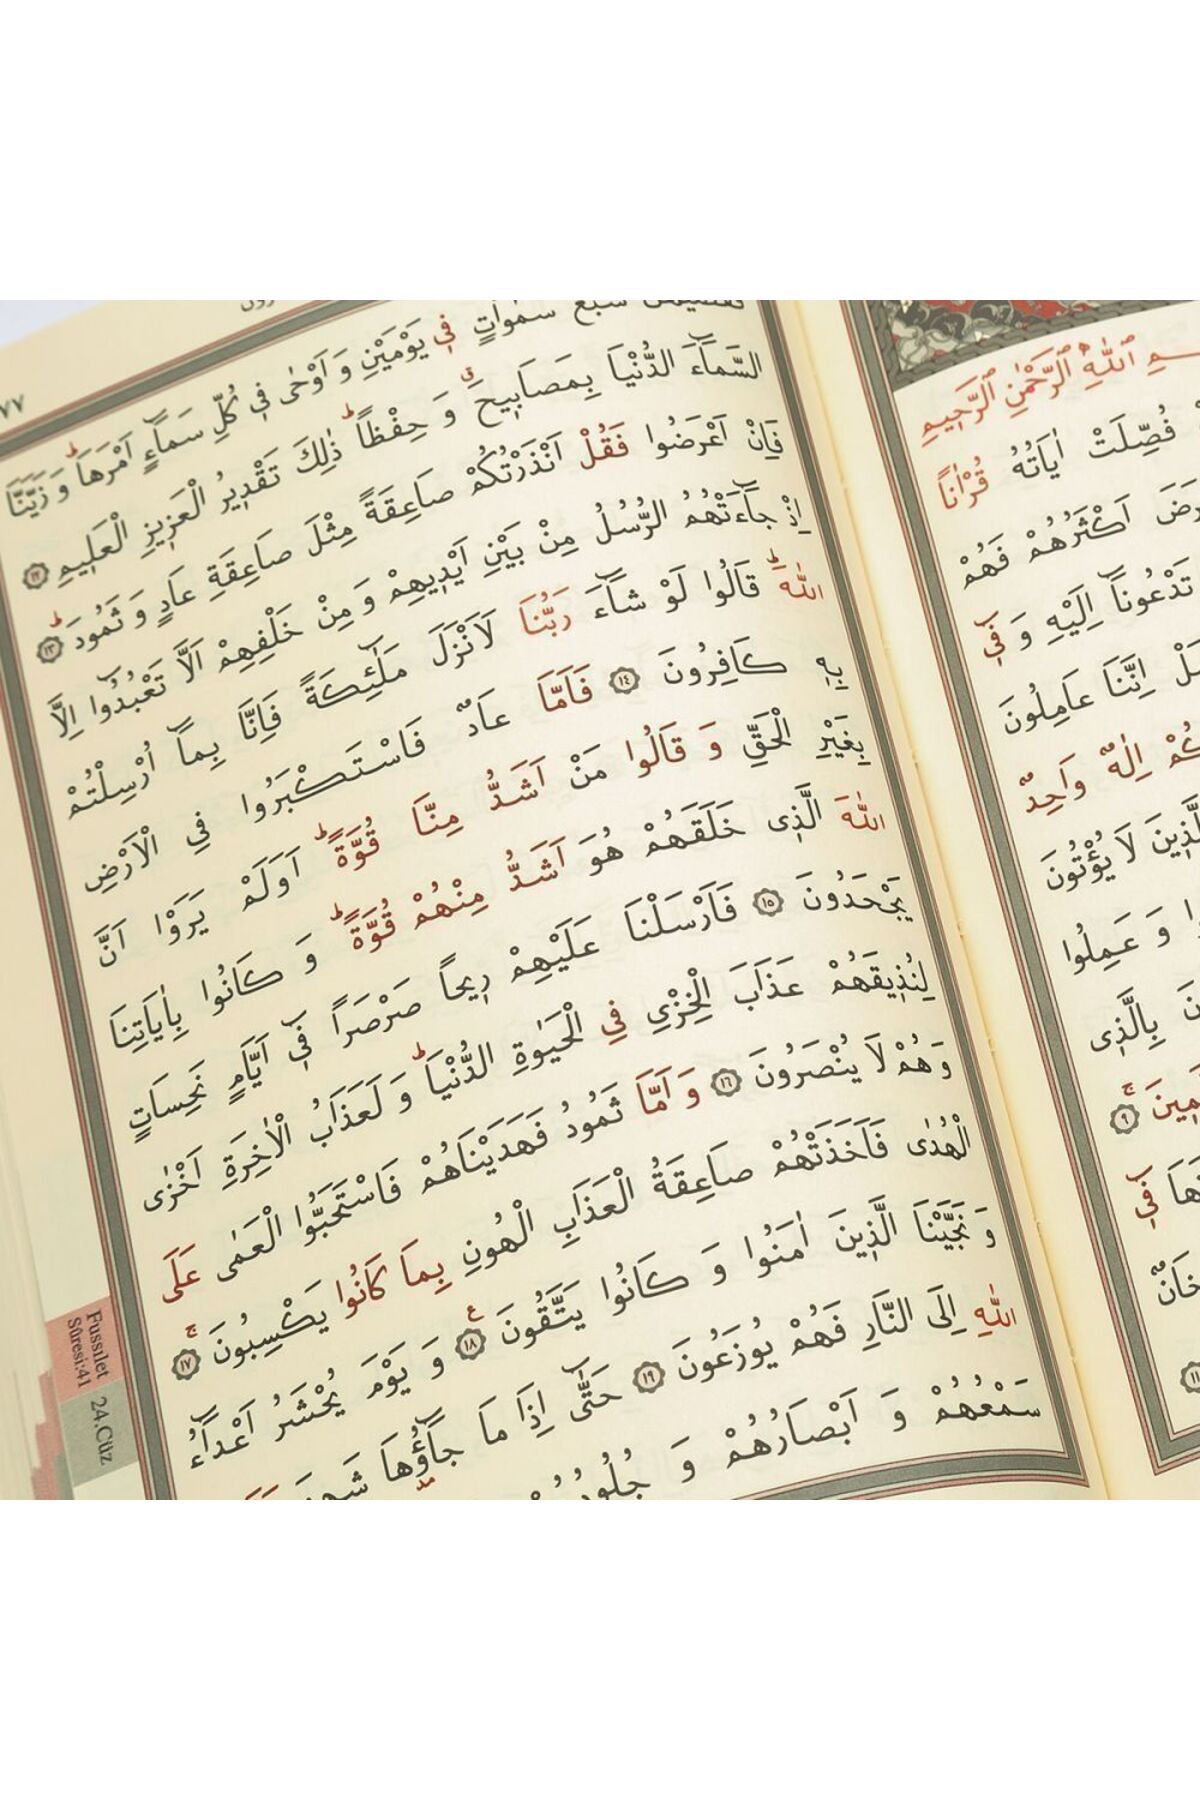 بِسْمِ اللّٰهِ الرَّحْمٰنِ الرَّحِيمِ
فُصِّلَتْ اٰيَاتُهُ قُرْاٰناً
اَكْثَرُهُمْ فَهُمْ
تَدْعُونَٓا اِلَيْهِ وَ فِٓي
اِنَّنَا عَامِلُونَ
اِلٰهٌ وَاحِدٌ
لَا يُؤْتُونَ
وَ عَمِلُوا
بِالَّذِي
٩
فِٓي
سَبْعَ سَمٰوَاتٍ فِي يَوْمَيْنِ وَ اَوْحٰى فِي كُلِّ سَمَٓاءٍ اَمْرَهَاۜ وَ زَيَّنَّا
السَّمَٓاءَ الدُّنْيَا بِمَصَابِيحَۗ وَ حِفْظاًۜ ذٰلِكَ تَقْدِيرُ الْعَزِيزِ الْعَلِيمِ ١٢
فَاِنْ اَعْرَضُوا فَقُلْ اَنْذَرْتُكُمْ صَاعِقَةً مِثْلَ صَاعِقَةِ عَادٍ وَ ثَمُودَۜ ١٣
اِذْ جَٓاءَتْهُمُ الرُّسُلُ مِنْ بَيْنِ اَيْدِيهِمْ وَ مِنْ خَلْفِهِمْ اَلَّا تَعْبُدُٓوا اِلَّا
اللّٰهَۜ قَالُوا لَوْ شَٓاءَ رَبُّنَا لَاَنْزَلَ مَلٰٓئِكَةً فَاِنَّا بِمَٓا اُرْسِلْتُمْ
بِهِ كَافِرُونَ ١٤ فَاَمَّا عَادٌ فَاسْتَكْبَرُوا فِي الْاَرْضِ
بِغَيْرِ الْحَقِّ وَ قَالُوا مَنْ اَشَدُّ مِنَّا قُوَّةًۜ اَوَلَمْ يَرَوْا اَنَّ
اللّٰهَ الَّذِي خَلَقَهُمْ هُوَ اَشَدُّ مِنْهُمْ قُوَّةًۜ وَ كَانُوا بِاٰيَاتِنَا
يَجْحَدُونَ ١٥ فَاَرْسَلْنَا عَلَيْهِمْ رِيحاً صَرْصَراً فِٓي اَيَّامٍ نَحِسَاتٍ
لِنُذِيقَهُمْ عَذَابَ الْخِزْيِ فِي الْحَيٰوةِ الدُّنْيَاۜ وَ لَعَذَابُ الْاٰخِرَةِ اَخْزٰى
وَ هُمْ لَا يُنْصَرُونَ ١٦ وَ اَمَّا ثَمُودُ فَهَدَيْنَاهُمْ فَاسْتَحَبُّوا الْعَمٰى عَلَى
الْهُدٰى فَاَخَذَتْهُمْ صَاعِقَةُ الْعَذَابِ الْهُونِ بِمَا كَانُوا يَكْسِبُونَۚ ١٧
وَ نَجَّيْنَا الَّذِينَ اٰمَنُوا وَ كَانُوا يَتَّقُونَ ١٨ وَ يَوْمَ يُحْشَرُ اَعْدَٓاءُ
اللّٰهِ اِلَى النَّارِ فَهُمْ يُوزَعُونَ ١٩ حَتّٰٓى اِذَا مَا جَٓاؤُ۫هَا
سَمْعُهُمْ وَ اَبْصَارُهُمْ وَ
Fussılet
Sûresi:41
24.Cüz